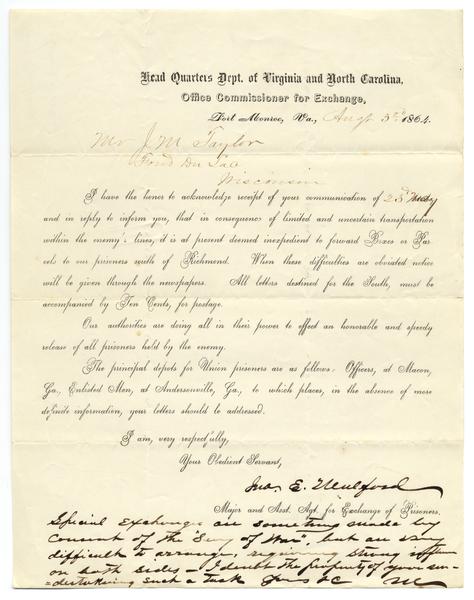 Head Quarters Dept. of Virginia and North Carolina,
Office Commissioner for Exchange,
Fort Monroe, Va., Augt 3rd 1864.
Mr J. M. Taylor
Fond Du Lac
Wisconsin
I have the honor to acknowledge receipt of your communication of 23d
and in reply to inform you, that in consequence of limited and uncertain transportation
within the enemy's lines, it is at present deemed inexpedient to forward Boxes or Par
cels to our prisoners south of Richmond. When these difficulties are obviated notice
will be given through the newspapers. All letters destined for the South, must be
accompanied by Ten Cents, for postage.
Our authorities are doing all in their power to effect an honorable and speedy
release of all prisoners held by the enemy.
The principal depots for Union prisoners are as follows: Officers, at Macon,
Ga., Enlisted Men, at Andersonville, Ga., to which places, in the absence of more
definite information, your letters should be addressed.
I am, very respectfully,
Your Obedient Servant,
Jno. E. Mulford
Major and Asst. Agt. for Exchange of Prisoners.
Special Exchanges are sometimes made by
consent of the "Secy of War", but are very
difficult to arrange, requiring strong
on both sides - I doubt the propriety of your un-
=dertaking such a task Yours &c M